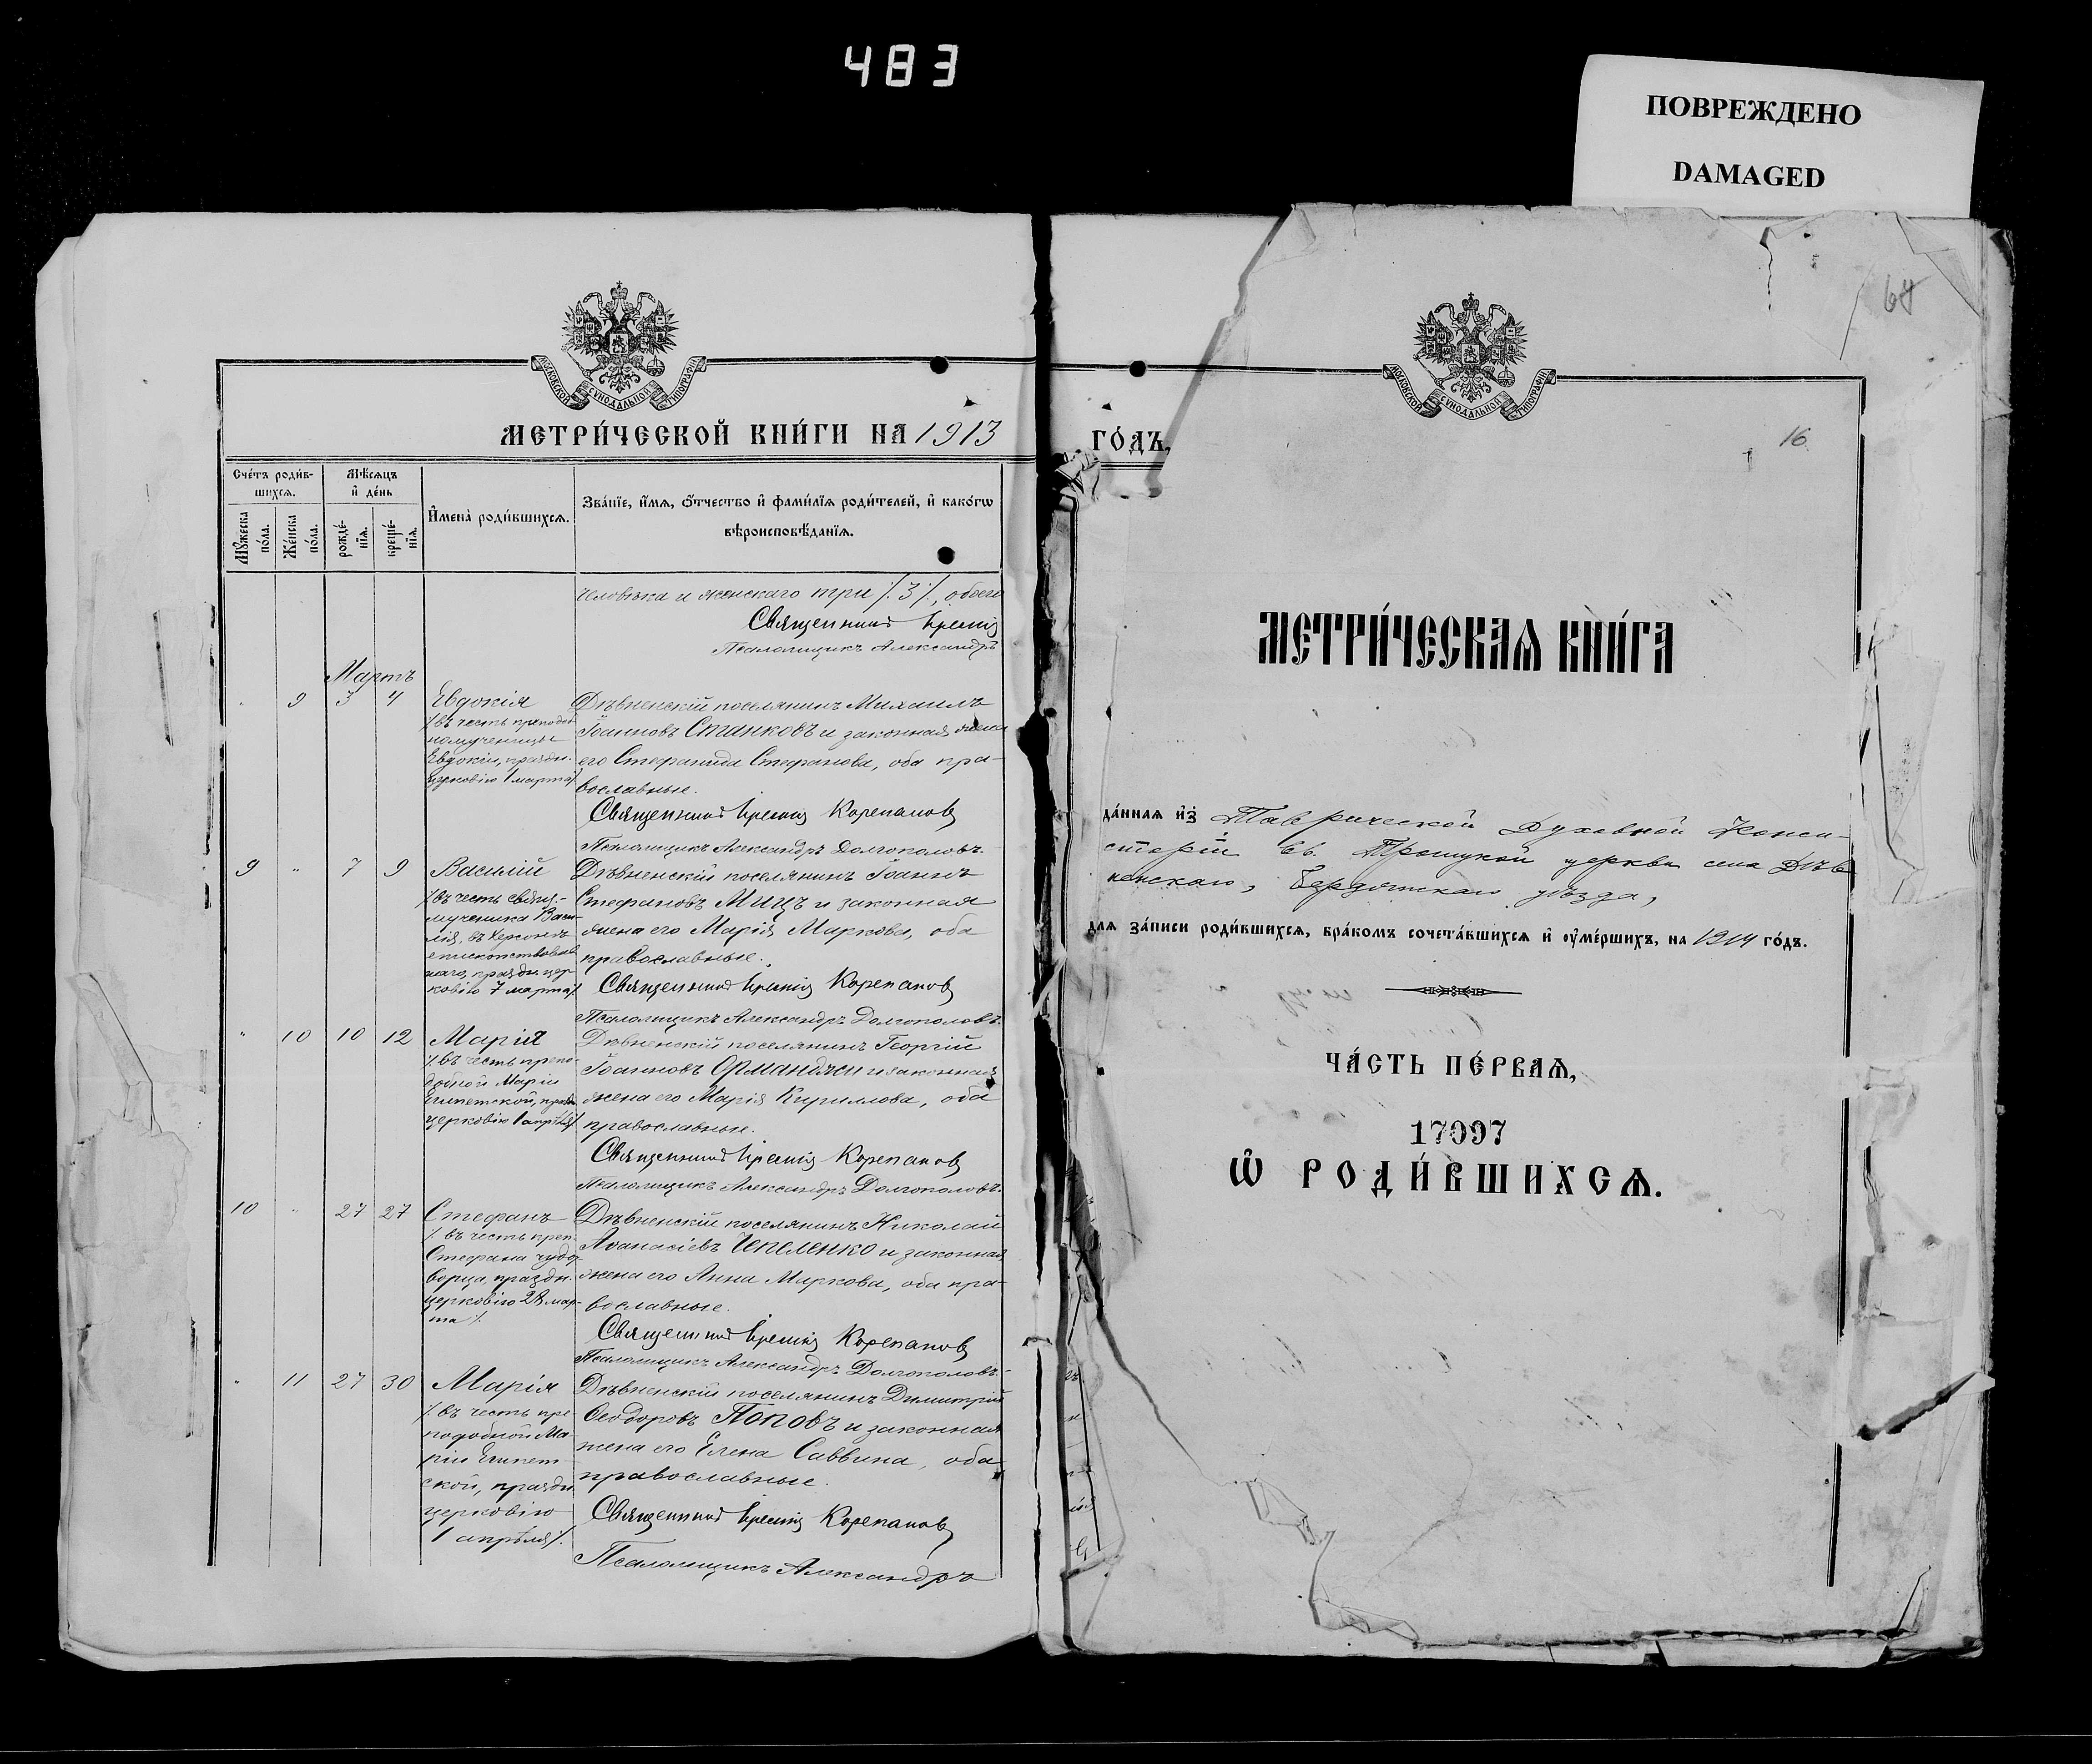 483
ПОВРЕЖДЕНО
DAMAGED
МОСКОВСКОЙ СѴНОДАЛЬНОЙ ТИПОГРАФІИ
МЕТРИ́ЧЕСКОЙ КНИ́ГИ НА 1913
Сче́тъ роди́в-
шихсѧ.
Мѣ́сѧцъ
и҆ де́нь
Мꙋ́жеска
по́ла.
Же́нска
по́ла.
рожде́-
нїѧ.
креще́-
нїѧ.
И҆мена̀ роди́вшихсѧ.
Зва́нїе, и҆́мѧ, ѻ҆́тчество и҆ фами́лїѧ роди́телей, и҆ како́гѡ
вѣроисповѣ́данїѧ.
человѣка и женскаго три /.3/., обоего
Священникъ
Псаломщикъ Александръ
Мартъ
" 9 3 4 Евдокія
/.въ честь преподоб
номученицы
Евдокіи, праздн.
церковію 1 марта/.
Дѣвненскій поселянинъ Михаилъ
Іоанновъ Станковъ и законная жена
его Стефанида Стефанова, оба пра-
вославные.
Священникъ Корепановъ
Псаломщикъ Александръ Долгополовъ.
9 " 7 9 Василій
/.въ честь священ-
мученика Васи-
лія, въ Херсонѣ
епископствовав
шаго, праздн. цер
ковію 7 марта/.
Дѣвненскій поселянинъ Іоаннъ
Стефановъ Мицъ и законная
жена его Марія Маркова, оба
православные.
Священникъ Корепановъ
Псаломщикъ Александръ Долгополовъ.
" 10 10 12 Марія
/.въ честь препо-
добной Маріи
Египетской, праздн.
церковію 1 апрѣля/.
Дѣвненскій поселянинъ Георгій
Іоанновъ Орманджи и законная
жена его Марія Кириллова, оба
православные.
Священникъ Корепановъ
Псаломщикъ Александръ Долгополовъ.
10 " 27 27 Стефанъ
/.въ честь преп.
Стефана чудо-
ворца, праздн.
церковію 28 мар-
та/.
Дѣвненскій поселянинъ Николай
Аѳанасіевъ Чепеленко и законная
жена его Анна Маркова, оба пра-
вославные.
Священникъ Корепановъ
Псаломщикъ Александръ Долгополовъ.
" 11 27 30 Марія
/.въ честь пре-
подобной Ма-
ріи Египет-
ской, праздн.
церковію
1 апрѣля/.
Дѣвненскій поселянинъ Димитрій
Ѳеодоровъ Поповъ и законная
жена его Елена Саввина, оба
православные.
Священникъ Корепановъ
Псаломщикъ Александръ
ГО́ДЪ,
64
МОСКОВСКОЙ СѴНОДАЛЬНОЙ ТИПОГРАФІИ
16
МЕТРИ́ЧЕСКАѦ КНИ́ГА
да́ннаѧ и҆з̾ Таврической Духовной Конси-
сторіи въ Троицкой церкви села Дѣв
ненскаго, Бердянскаго уѣзда,
длѧ за́писи роди́вшихсѧ, бра́комъ сочета́вшихсѧ и҆ ᲂу҆ме́ршихъ, на 1914 го́дъ.
ЧА́СТЬ ПЕ́РВАѦ,
17097
Ѡ҆ РОДИ́ВШИХСѦ.